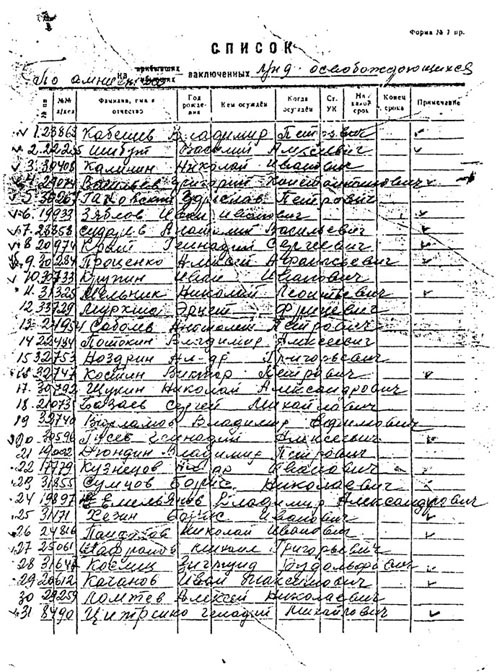 Форма № 1 пр.
СПИСОК
По амнистии на прибывших заключенных гр-д освобождающихся
№№ пп №№ л/дел Фамилия, имя и отчество Год рожде- ния Кем осуждён Когда осуждён Ст. УК На какой срок Конец срока Примечание
1. 23863 Кабешев Владимир Петрович
2. 22255 Шибут Василий Алексеевич
3. 30408 Калинин Николай Иванович
4. 29074 Григорий Константинович
5. 30207 Петрович
6. 19933 Зяблов Иван Иванович
7. 28358 Анатолий Васильевич
8. 20974 Геннадий Сергеевич
9. 30284 Проценко Алексей Афанасьевич
10. 30733 Крупин Иван Иванович
11. 31325 Мельник Николай Леонтьевич
12. 33929 Эрнст
13. 21954 Соболь Анатолий Петрович
14 22484 Потокин Владимир Алексеевич
15 32753 Ноздрин Ал-др Григорьевич
16 32747 Виктор Петрович
17. 30792 Щукин Николай Александрович
18. 21073 Базаев Сергей Михайлович
19 32740 Варламов Владимир Вадимович
20 30596 Гусев Геннадий Алексеевич
21 19032 Дюндин Владимир Петрович
22 17779 Кузнецов Ал-др Иванович
23 31855 Сумцов Борис Николаевич
24 19897 Емельянов Владимир Александрович
25 31171 Кезин Борис Иванович
26 24816 Николай Иванович
27 25061 Шафранов Григорьевич
28 31647 Зигмунд Рудольфович
29 20612 Качанов Иван Максимович
30 29259 Ломтев Алексей Николаевич
31 8490 Михайлович